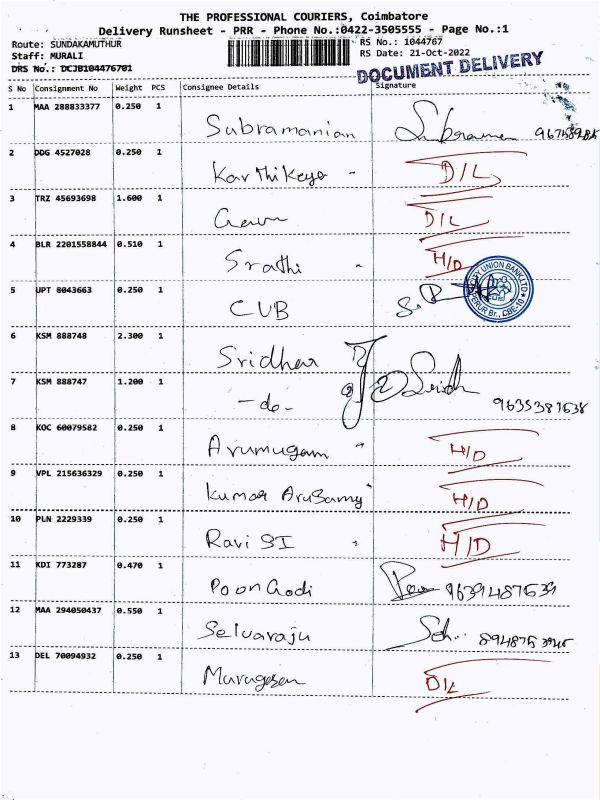 THE PROFESSIONAL COURIERS, Coimbatore
Delivery Runsheet - PRR - Phone No.:0422-3505555 - Page No.:1
Route: SUNDAKAMUTHUR RS No.: 1044767
Staff: MURALI RS Date: 21-Oct-2022
DRS No.: DCJB104476701 DOCUMENT DELIVERY
S No Consignment No Weight PCS Consignee Details Signature
1 MAA 288833377 0.250 1 Subramanian
2 DDG 4527028 0.250 1 Karthikeya - D/L
3 TRZ 45693698 1.600 1 D/L
4 BLR 2201558844 0.510 1 Srathi - H/D
5 UPT 8043663 0.250 1 CUB
UNION BANK LTD
6 KSM 888748 2.300 1 Sridhar
7 KSM 888747 1.200 1 -do- 9635387638
8 KOC 60079582 0.250 1 Arumugam " H/D
9 VPL 215636329 0.250 1 Kumar Arusamy " H/D
10 PLN 2229339 0.250 1 Ravi SI H/D
11 KDI 773287 0.470 1 Poongodi 9639487539
12 MAA 294050437 0.550 1 Selvaraju
13 DEL 70094932 0.250 1 Murugesan D/L